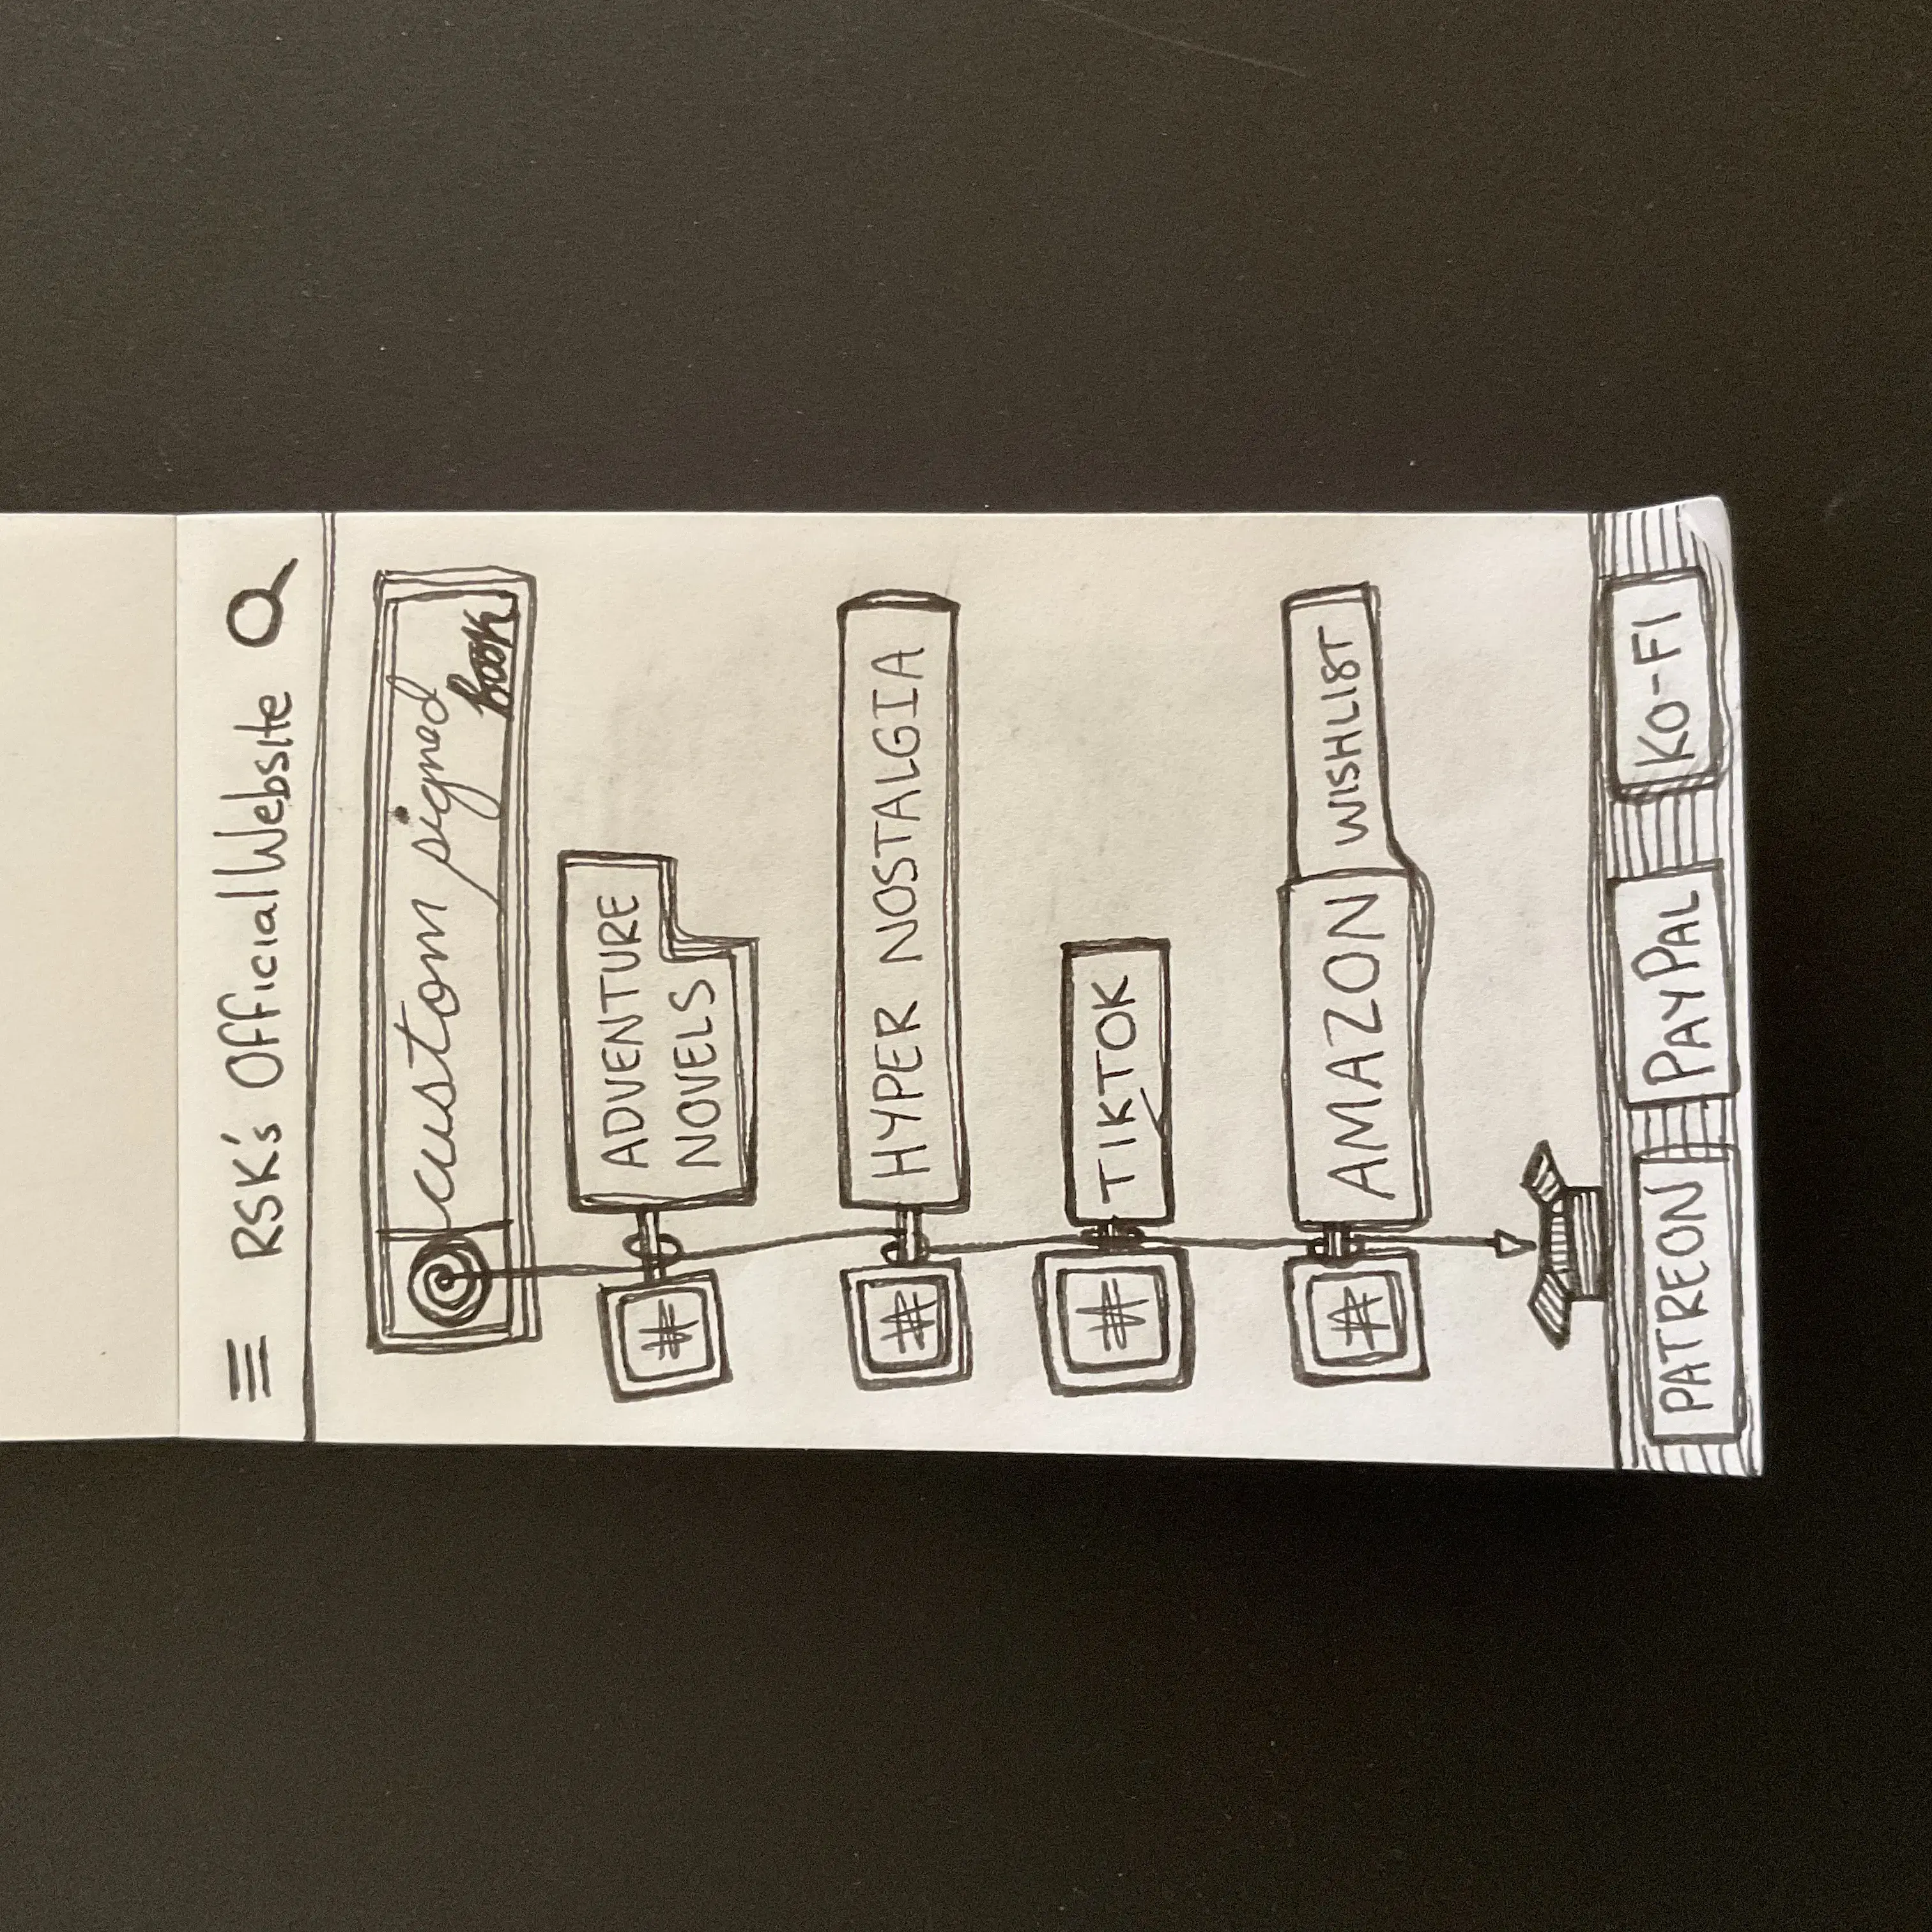 RSK's Official Website
custom signed
book
#
ADVENTURE
NOVELS
#
HYPER NOSTALGIA
#
TIKTOK
#
AMAZON WISHLIST
PATREON PAYPAL KO-FI